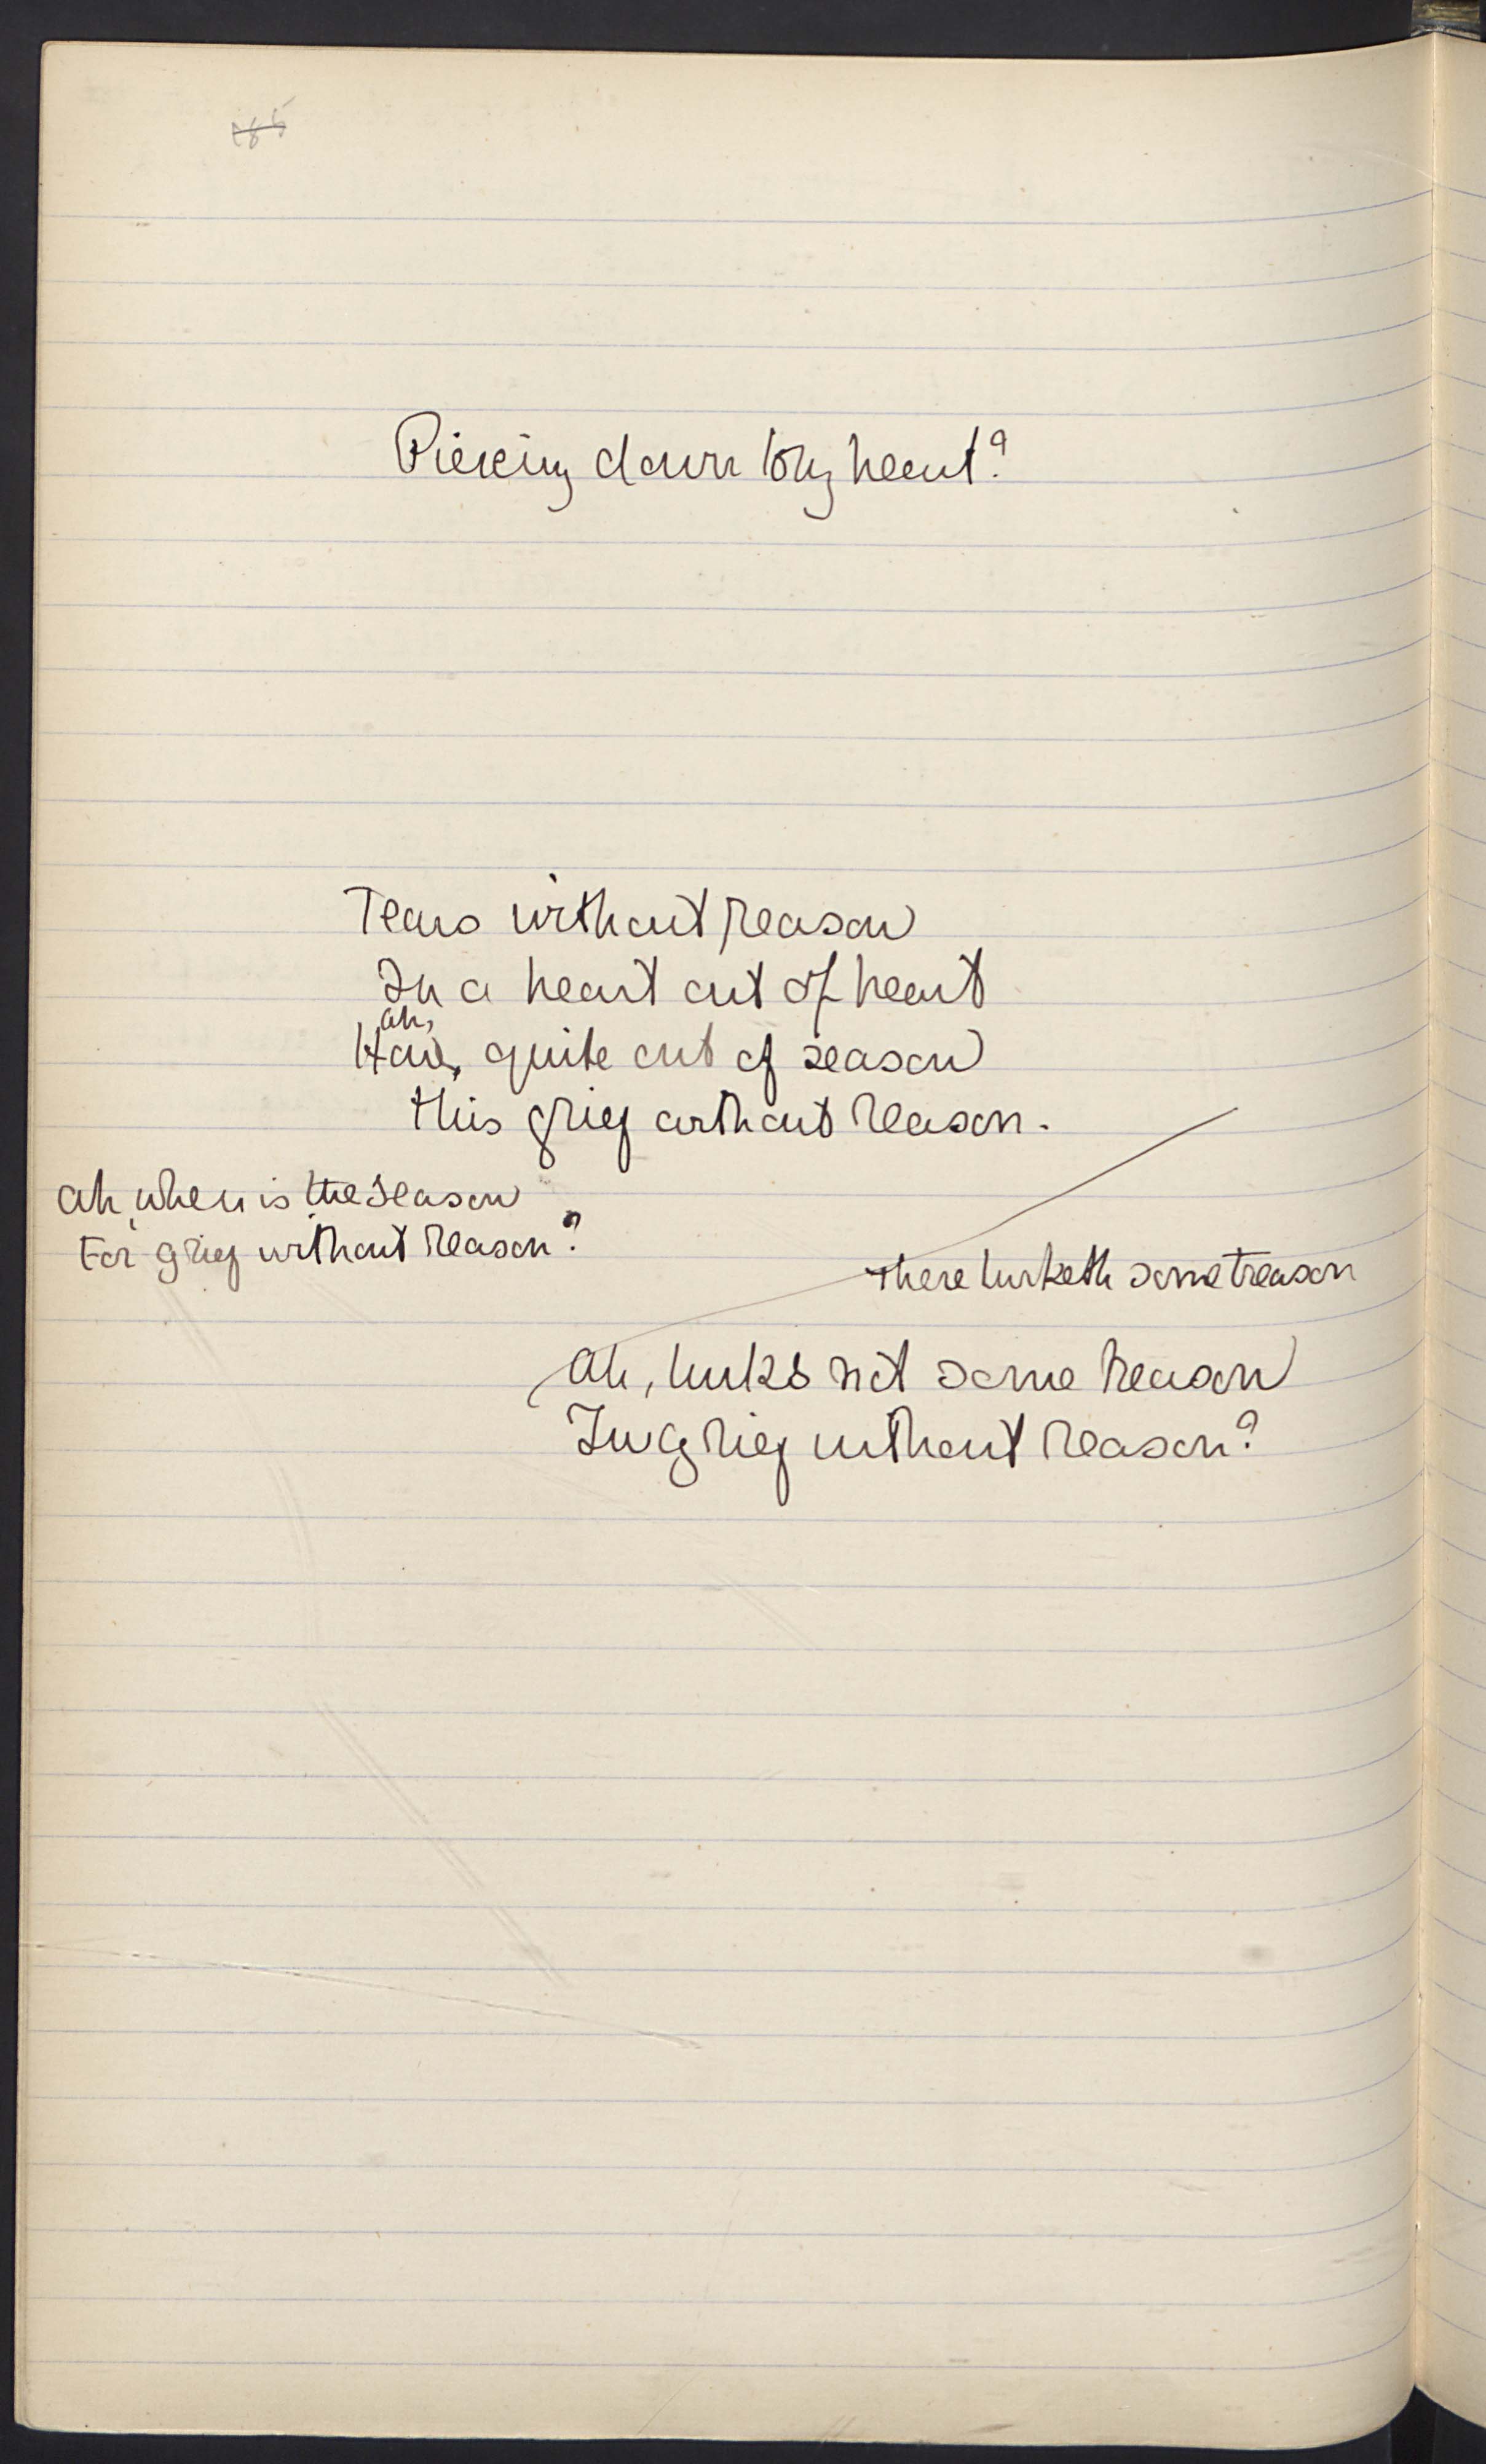 Piercing down to my heart?
Tears without reason
In a heart out of heart
ah,
How, quite out of season
this grief without reason.
Ah, when is the season
For grief without reason?
There lurketh some treason
Ah, lurks not some treason
In grief without reason?